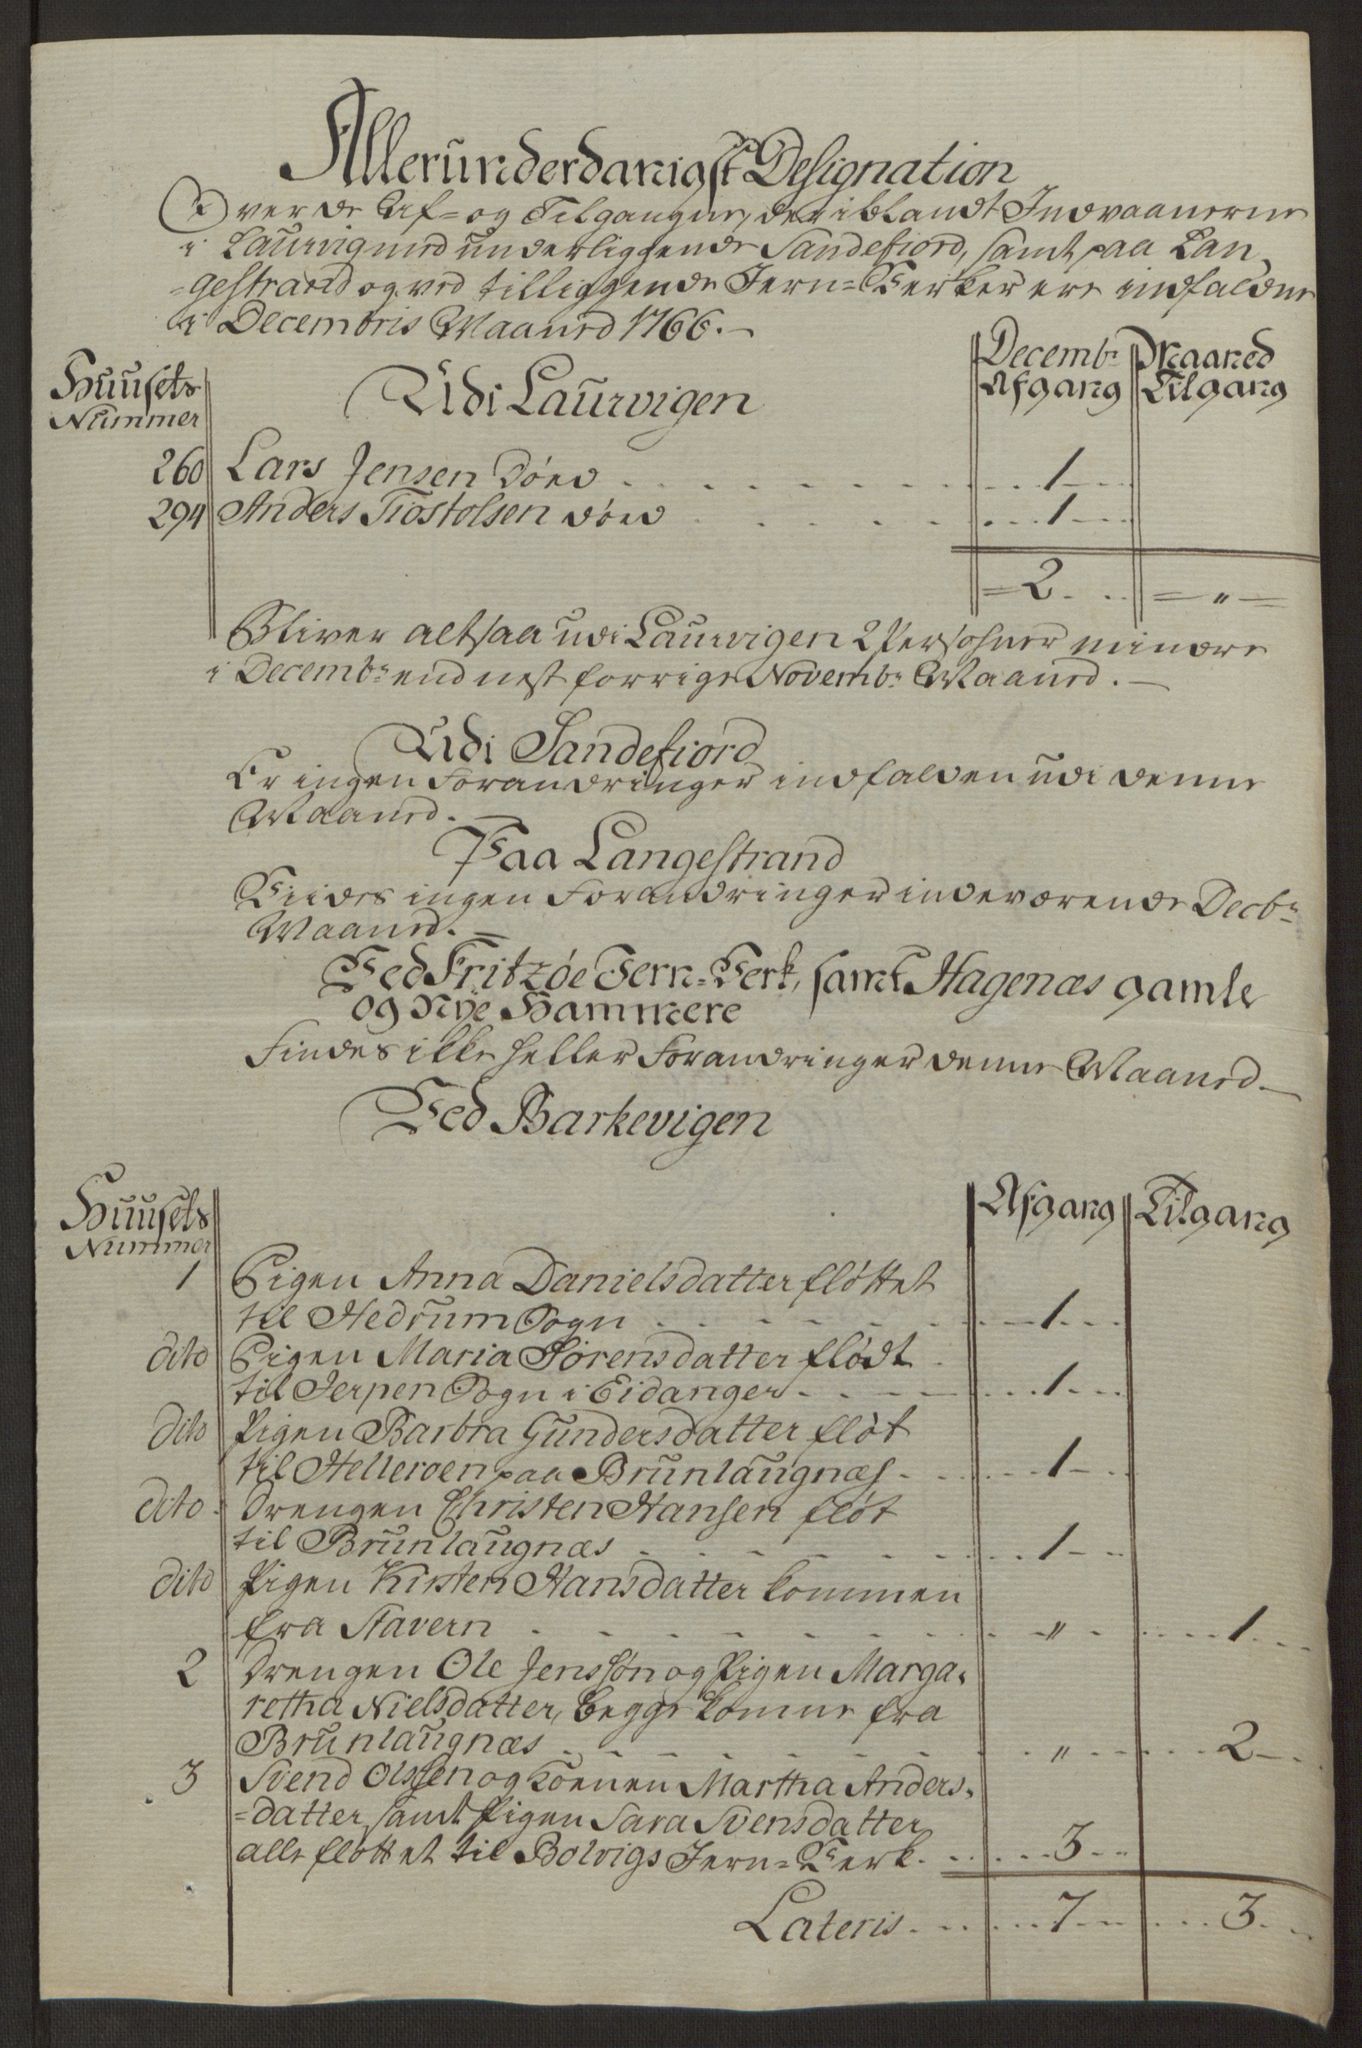 Allerunderdanigst Designation
Over de Af- og Tilgange, der iblandt Indvaanerne
i Laurvig med underliggende Sandefiord, samt paa Lan-
-gestrand og ved tilliggende Jern-Verker ere indfaldne
i Decembris Maaned 1766.
Huusets
Nummer
Udi Laurvigen
Decembr Maaned
Afgang Tilgang
260 Lars Jensen død . . . 1
294 Anders Tiostolsen død . . . 1
2 "
Bliver altsaa udi Laurvigen 2 Persohner mindre
i Decembr end nest forrige Novembr Maaned.
Udi Sandefiord
Er ingen Forandringer indfalden udi denne
Maaned.
Paa Langestrand
Fiides ingen Forandringer indeværende Decbr
Maaned.
Ved Fritzöe Jern-Verk, samt Hagenæs gamle
og Nye Hammere
Findes ikke heller Forandringer denne Maaned.
Ved Barkevigen
Huusets
Nummer
Afgang Tilgang
1 Pigen Anna Danielsdatter fløttet
til Hedrum Sogn . . . 1
dito Pigen Maria Sørensdatter flødt
til Jerpen Sogn i Eidanger . . . 1
dito Pigen Barbra Gundersdatter fløt
til Helleroen paa Brunlaugnæs . . . 1
dito Drengen Christen Hansen fløt
til Brunlaugnæs . . . 1
dito Pigen Kirsten Hansdatter kommen
fra Stavern . . . " 1
2 Drengen Ole Jenssøn og Pigen Marga-
retha Nielsdatter, begge komne fra
Brunlaugnæs . . . " 2
3 Svend Olssen og Konen Martha Anders-
-datter, samt Pigen Sara Svensdatter
alle fløttet til Bolvigs Jern-Verk . . . 3
Lateris . . . 7 3